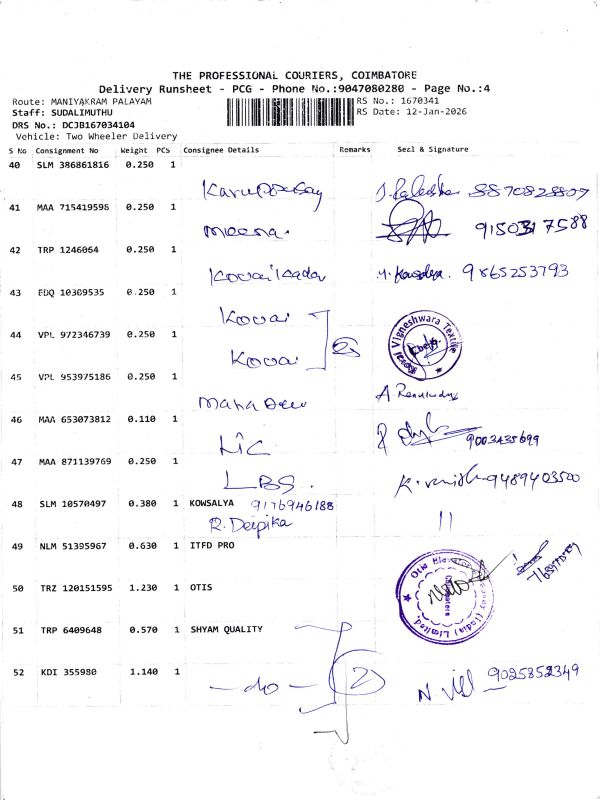 THE PROFESSIONAL COURIERS, COIMBATORE
Delivery Runsheet - PCG - Phone No.:9047080280 - Page No.:4
Route: MANIYAKRAM PALAYAM
RS No.: 1670341
Staff: SUDALIMUTHU
RS Date: 12-Jan-2026
DRS No.: DCJB167034104
Vehicle: Two Wheeler Delivery
S No Consignment No Weight PCS Consignee Details Remarks Seal & Signature
40 SLM 386861816 0.250 1
41 MAA 715419598 0.250 1
Meena 9150317588
42 TRP 1246064 0.250 1
Kovai Kadar M. Kowsalya. 9865253793
43 EDQ 10309535 0.250 1
Kovai
44 VPL 972346739 0.250 1
Kovai 2
Kovai Vigneshwara Textile
45 VPL 953975186 0.250 1
Maha Devi
46 MAA 653073812 0.110 1
LIC 9003435699
47 MAA 871139769 0.250 1
LBS. 9489403500
48 SLM 10570497 0.380 1 KOWSALYA 9176946188
R. Deepika 11
49 NLM 51395967 0.630 1 ITFD PRO
50 TRZ 120151595 1.230 1 OTIS
Otis Elevator Company (India) Limited.
Coimbatore
51 TRP 6409648 0.570 1 SHYAM QUALITY
52 KDI 355980 1.140 1
- do - 2 9025852349